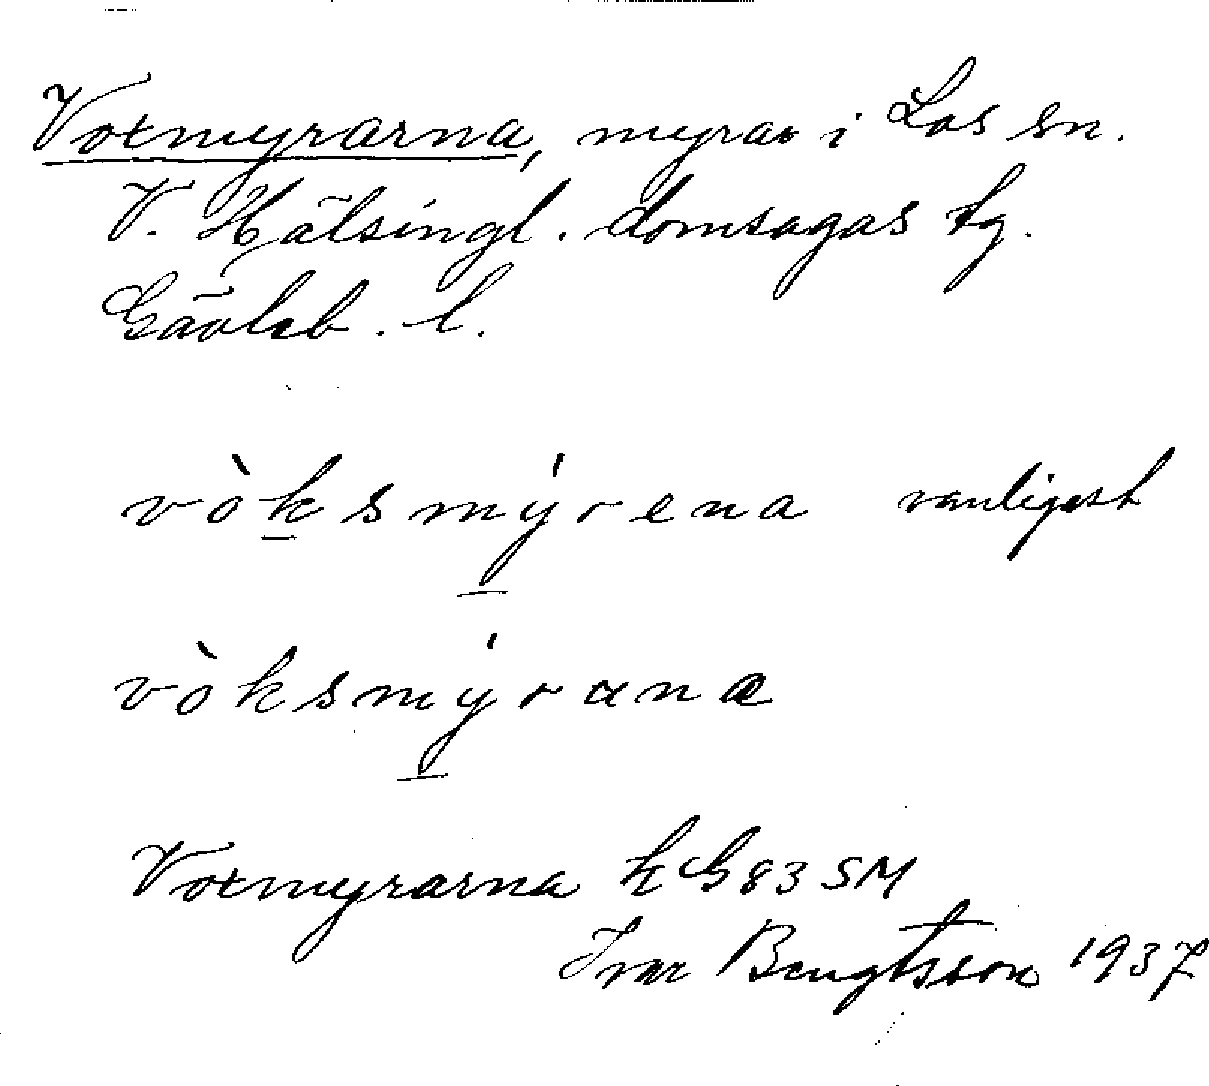 Voxmyrarna, myrar i Los sn.
V. Hälsingl. domsagas tg.
Gävleb. l.
vò̱ksmý̱rena vanligast
vòksmý̱rana
Voxmyrarna k G 83 SM
Ivar Bengtsson 1937